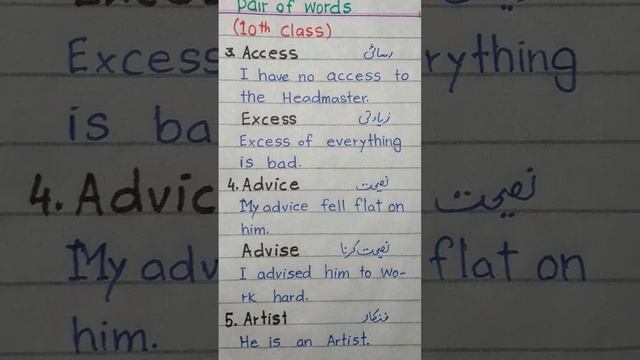 Pair of words
(10th class)
3. Access رسائی
I have no access to
the Headmaster.
Excess زیادتی
Excess of everything
is bad.
4. Advice نصیحت
My advice fell flat on
him.
Advise نصیحت کرنا
I advised him to wo-
rk hard.
5. Artist فنکار
He is an Artist.